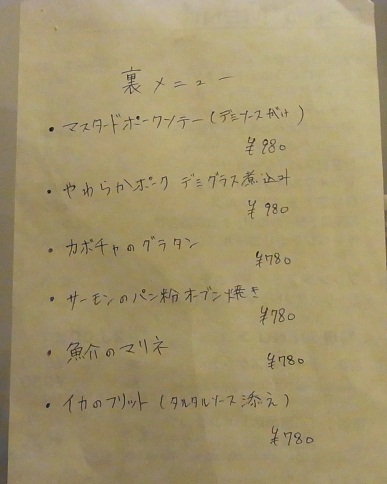 裏メニュー
・マスタードポークソテー(デミソースがけ)
¥980
・やわらかポーク デミグラス煮込み
¥980
・カボチャのグラタン
¥780
・サーモンのパン粉オーブン焼き
¥780
・魚介のマリネ
¥780
・イカのフリット(タルタルソース添え)
¥780